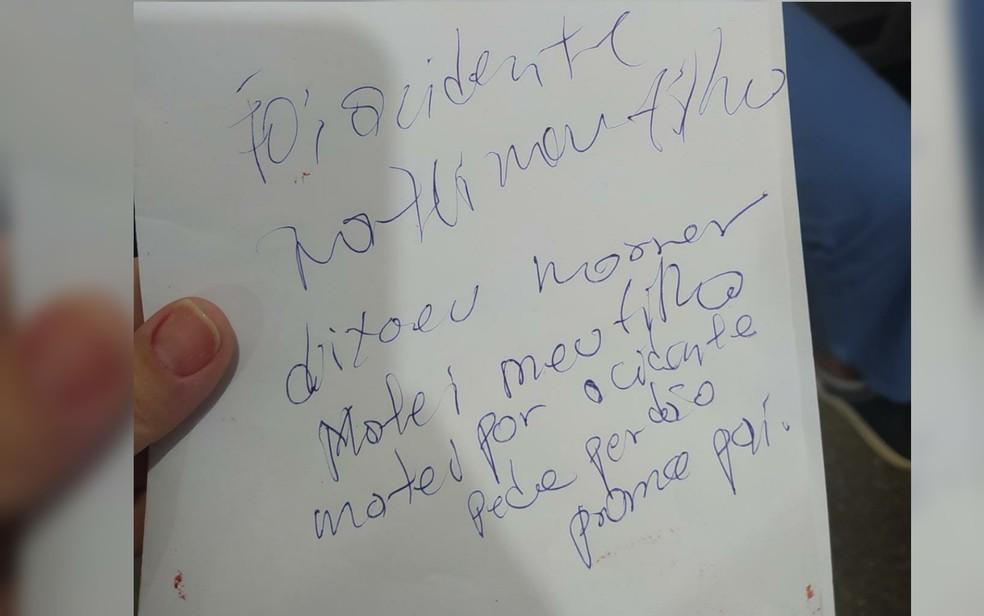 foi acidente
matei meu filho
dixoeu morrer
Matei meu filho
matei por acidente
pede perdão
prome pai.